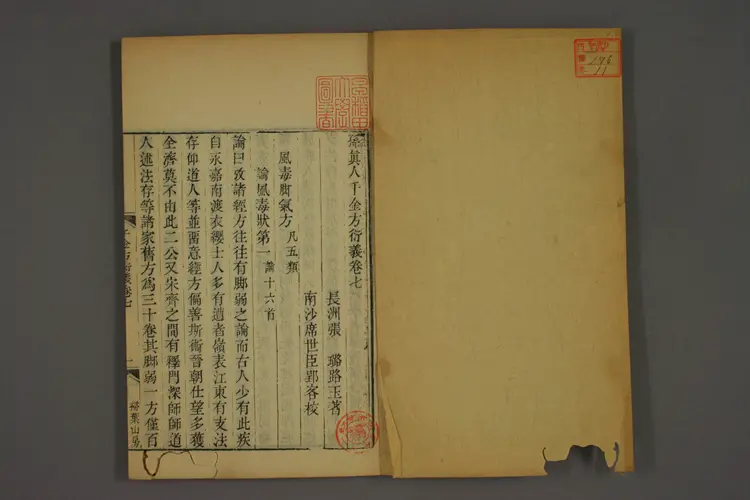 孫眞人千金方衍義卷七
長洲張 璐路玉著
南沙席世臣郢客校
風毒脚氣方 凡五類
論風毒狀第一 論十六首
論曰攷諸經方徃徃有脚弱之論而古人少有此疾
自永嘉南渡衣纓士人多有遭者嶺表江東有支法
存仰道人等並畱意經方偏善斯術晉朝仕望多獲
全濟莫不由此二公又宋齊之間有釋門深師師道
人述法存等諸家舊方爲三十卷其脚弱一方僅百
千金方衍義卷七
一
掃葉山房
早稻田大學圖書
196
11